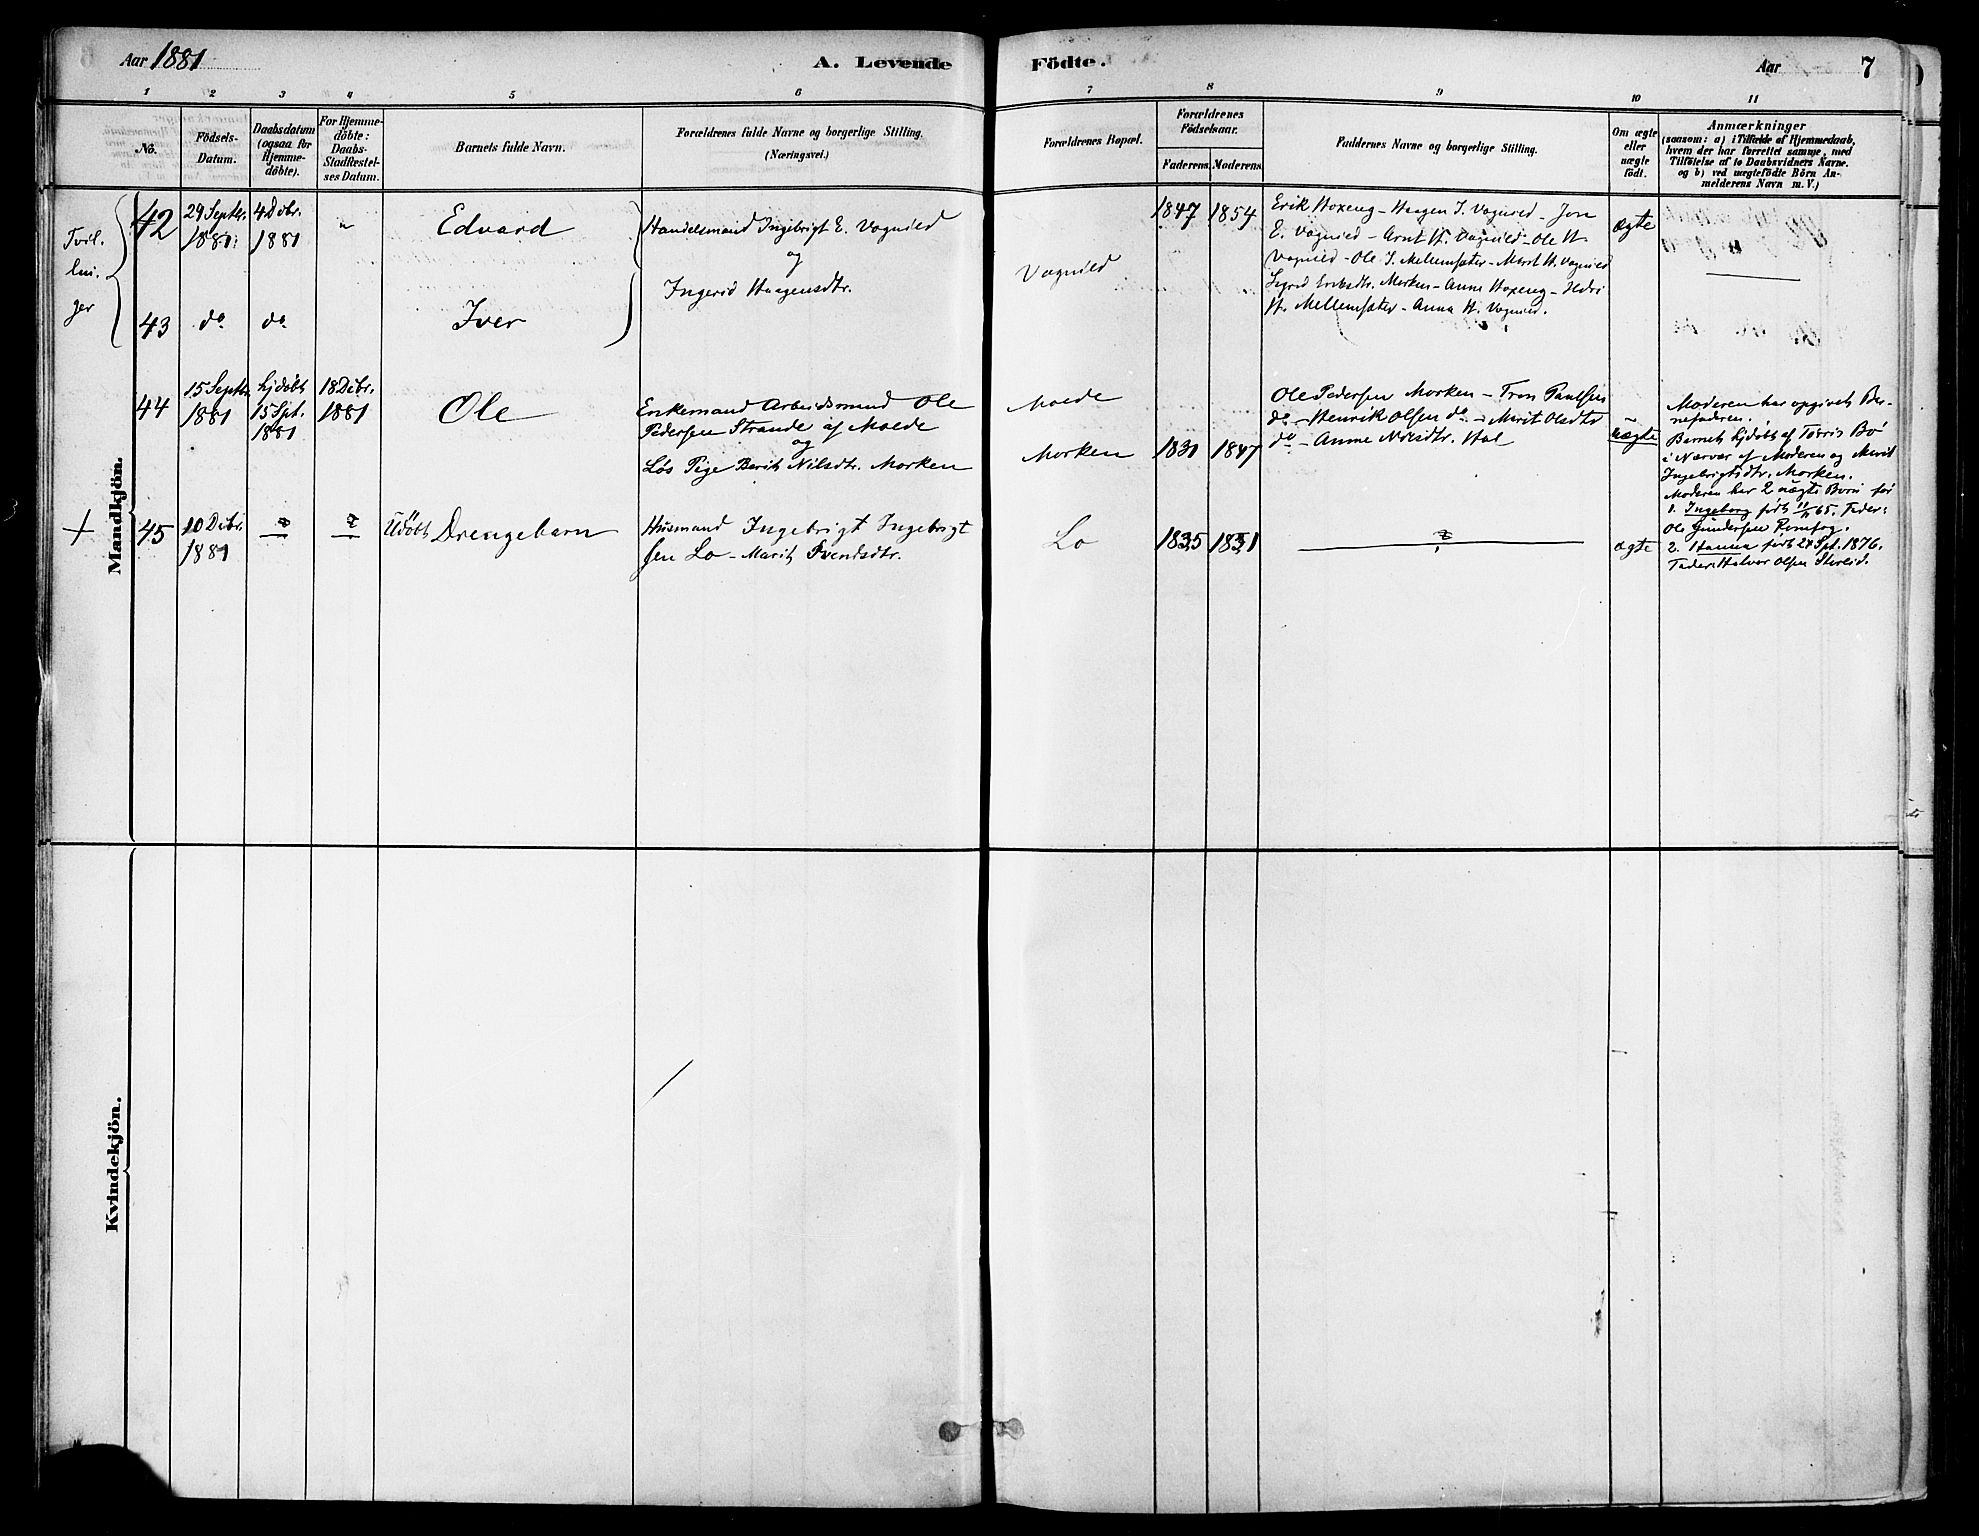 Aar 1881
A. Levende
Födte.
Aar
7
1 2 3 4 5 6 7 8 9 10 11
No.
Födsels-
Datum.
Daabsdatum
(ogsaa for
Hjemme-
döbte).
For Hjemme-
döbte:
Daabs-
Stadfæstel-
ses Datum.
Barnets fulde Navn.
Forældrenes fulde Navne og borgerlige Stilling.
(Næringsvei.)
Forældrenes Bopæl.
Forældrenes
Födselsaar.
Faderens. Moderens.
Faddernes Navne og borgerlige Stilling.
Om ægte
eller
uægte
födt.
Anmærkninger
(saasom: a) i Tilfælde af Hjemmedaab,
hvem der har forrettet samme, med
Tilföielse af to Daabsvidners Navne.
og b) ved uægtefödte Börn An-
melderens Navn m. V.)
Mandkjön.
Tvil-
lin-
ger
42
29 Septbr.
1881
4 Dbr.
1881
"
Edvard
Handelsmand Ingebrigt E. Vognild
og
Ingerid Haagensdtr.
Vognild
1847
1854
Erik Hoxeng - Haagen I. Vognild - Jon
E. Vognild - Arnt H. Vognild - Ole H.
Vognild - Ole I. Mellemsæter - Marit H. Vognild
Sigrid Eriksdtr. Morken - Anne Hoxeng - Ildri
H. Mellemsæter - Anna H. Vognild.
ægte
43
do
do
Iver
44
15 Septbr.
1881
hjdøbt
15 Spt.
1881
18 Dcbr.
1881
Ole
Enkemand Arbeidsmand Ole
Pedersen Strande af Molde
og
Løs Pige Berit Nilsdtr. Morken
Molde
Morken
1830
1847
Ole Pedersen Morken - Tron Paulsen
do - Henrik Olsen do - Marit Olsdtr
do - Anne Nilsdtr. Hol
uægte
Moderen har opgivet Bar-
nefaderen.
Barnet hjdøbt af Tørris Bø
i Nærvær af Moderen og Marit
Ingebrigtsdtr. Morken.
Moderen har 2 uægte Børn før
1. Ingeborg født 11/11 65. Fader:
Ole Gundersen
2. Hanna født 24 Spt. 1876.
Fader: Halvor Olsen
+
45
10 Dcbr.
1881
Udöbt Drengebarn
Husmand Ingebrigt Ingebrigt
sen Lo - Marit Svendsdtr.
Lo
1835
1831
ægte
Kvindekjön.